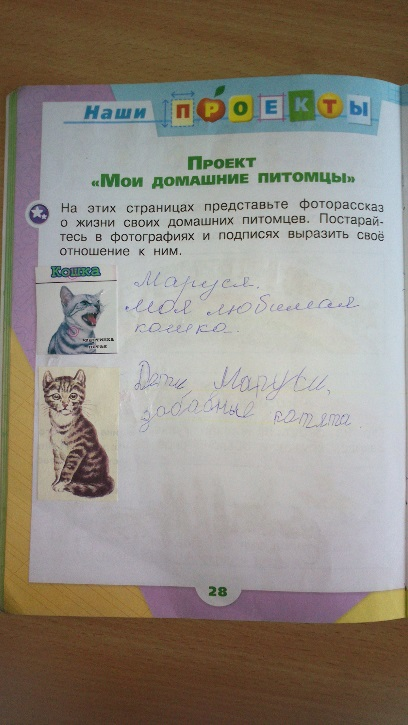 Наши ПРОЕКТЫ
ПРОЕКТ
«МОИ ДОМАШНИЕ ПИТОМЦЫ»
На этих страницах представьте фоторассказ
о жизни своих домашних питомцев. Постарай-
тесь в фотографиях и подписях выразить своё
отношение к ним.
Кошка
Маруся.
Моя любимая
кошка.
Дети Маруси,
забавные котята.
28